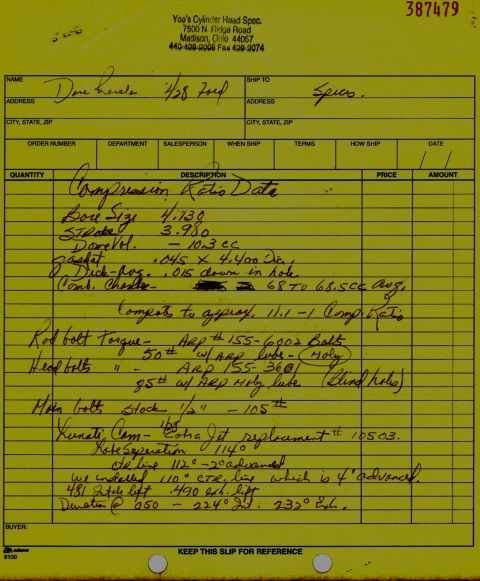 387479
Yoe's Cylinder Head Spec.
7500 N. Ridge Road
Madison, Ohio 44057
440-428-2005 Fax 428-2074
NAME Dave 428 Ford
SHIP TO Specs.
ADDRESS ADDRESS
CITY, STATE, ZIP CITY, STATE, ZIP
ORDER NUMBER DEPARTMENT SALESPERSON WHEN SHIP TERMS HOW SHIP DATE
QUANTITY DESCRIPTION PRICE AMOUNT
Compression Ratio Data
Bore Size 4.130
STROKE 3.980
Dome Vol. - 10.3 cc
gasket .045 x 4.400 Dia.
Deck-avg. .015 down in hole
Comb. Chamber - 68 TO 68.5cc avg.
Computes to approx. 11.1 - 1 Comp. Ratio
Rod bolt Torque - ARP # 155-6002 Bolts
50# w/ ARP lube - Moly
Head bolts " - ARP 155-3601 (blind holes)
95# w/ ARP Moly lube
Main bolts Stock 1/2" - 105#
Lunati Cam - Cobra Jet replacement # 10503.
Lobe Seperation 114°
ctr line 112° - 2° advanced
we installed 110° CTR. line which is 4° advanced.
.481 Intake lift .490 exh. lift
Duration @ .050 - 224° Int. 232° Exh.
BUYER:
adams
8100
KEEP THIS SLIP FOR REFERENCE